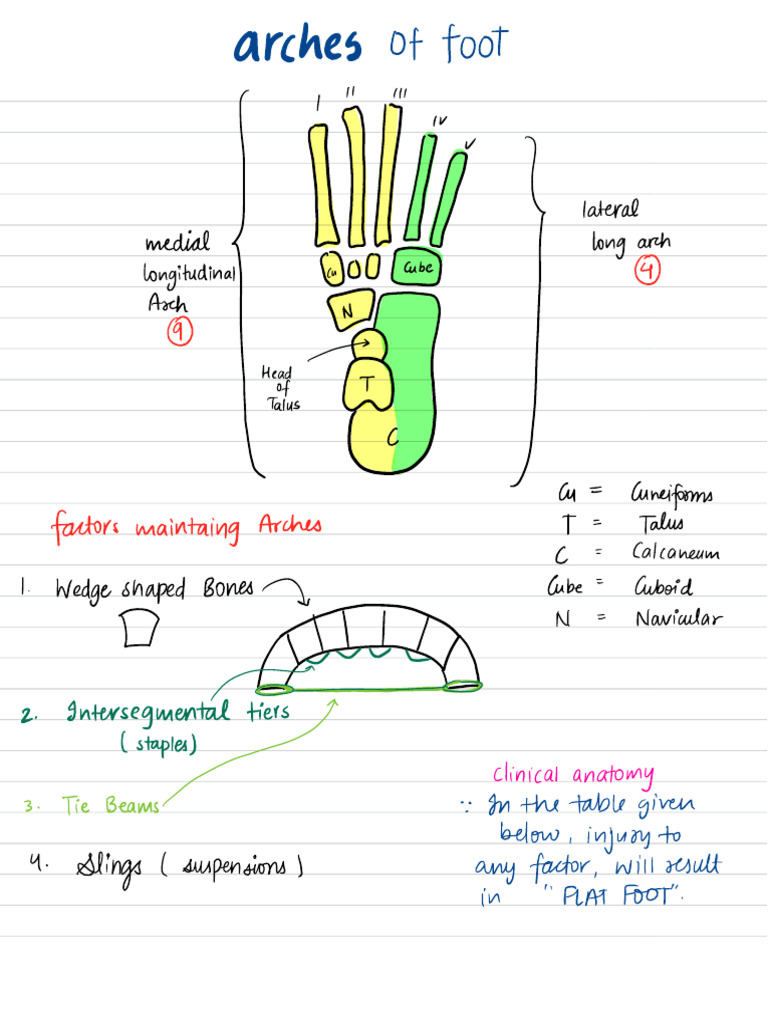 arches of foot
I II III IV V
medial
longitudinal
Arch
9
lateral
long arch
4
Cu
Cube
N
Head
of
Talus
T
C
Cu = Cuneiforms
T = Talus
C = Calcaneum
Cube = Cuboid
N = Navicular
factors maintaing Arches
1. Wedge shaped Bones
2. Intersegmental tiers
(staples)
3. Tie Beams
4. Slings (suspensions)
clinical anatomy
∵ In the table given
below, injury to
any factor, will result
in "FLAT FOOT".